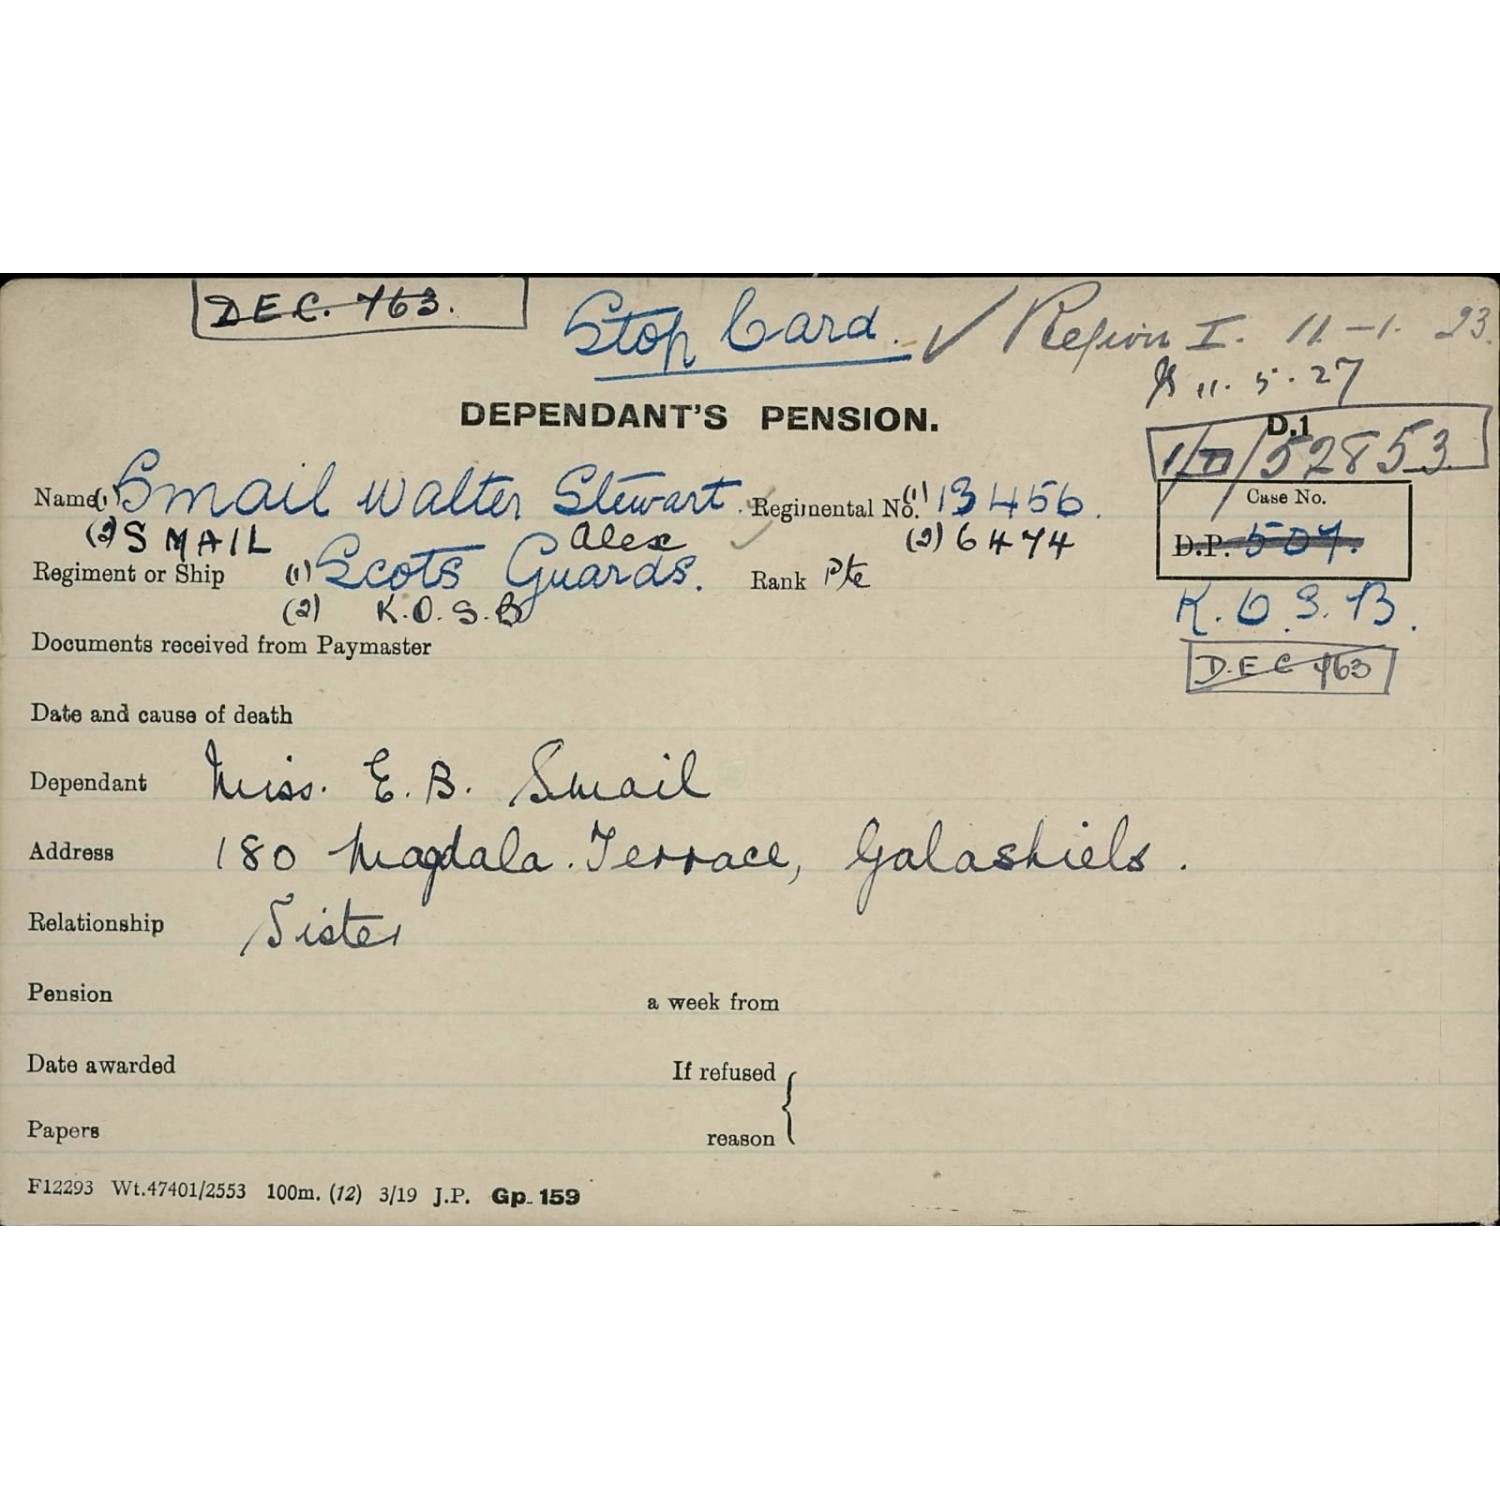 DEC. 763.
Stop Card. ✓ Region I. 11-1. 23.
11.5.27
DEPENDANT'S PENSION.
D.1
1/D/52853
Name (1) Smail Walter Stewart. Regimental No. (1) 13456.
Case No.
(2) SMAIL Alex (2) 6474
D.P. 507.
Regiment or Ship (1) Scots Guards. Rank Pte
(2) K.O.S.B
K.O.S.B.
Documents received from Paymaster
DEC 763
Date and cause of death
Dependant Miss. E. B. Smail
Address 180 Magdala Terrace, Galashiels.
Relationship Sister
Pension a week from
Date awarded If refused
Papers reason
F12293 Wt.47401/2553 100m. (12) 3/19 J.P. Gp. 159